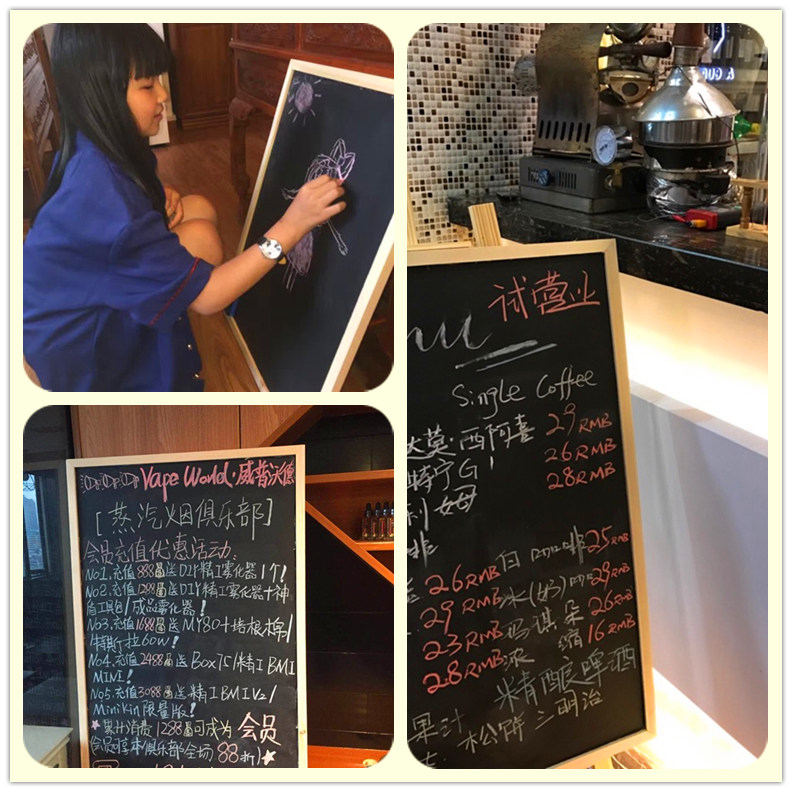 Vape World·威普沃德
[蒸汽烟俱乐部]
会员充值优惠活动:
No1.充值888届送DIY精工雾化器1个!
No2.充值1288届送DIY精工雾化器+神
俞工具包/成品雾化器!
No3.充值1688届送MY80+塔根棉/
特斯拉60W!
No4.充值2488届送Box75/精工BMI
MINI!
No5.充值3088届送精工BMI V2/
Minikin限量版!
★累计消费1288届可成为会员
会员享本俱乐部全场88折!★
试营业
Single Coffee
莫·西阿喜 29RMB
特宁G1 26RMB
28RMB
利姆
啡
26RMB 白咖啡 25RMB
29RMB 冰(奶)咖 29RMB
23RMB 玛琪朵 26RMB
28RMB 浓缩 16RMB
精酿啤酒
果汁
松饼 三明治